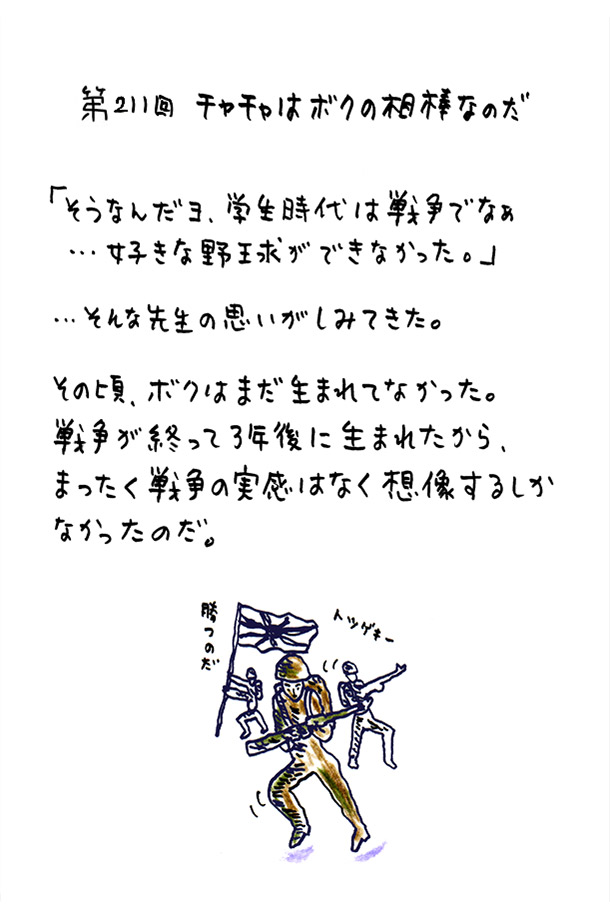 第211回 チャチャはボクの相棒なのだ
「そうなんだヨ、学生時代は戦争でなぁ
…好きな野球ができなかった。」
…そんな先生の思いがしみてきた。
その頃、ボクはまだ生まれてなかった。
戦争が終って3年後に生まれたから、
まったく戦争の実感はなく想像するしか
なかったのだ。
勝つのだ
トツゲキー